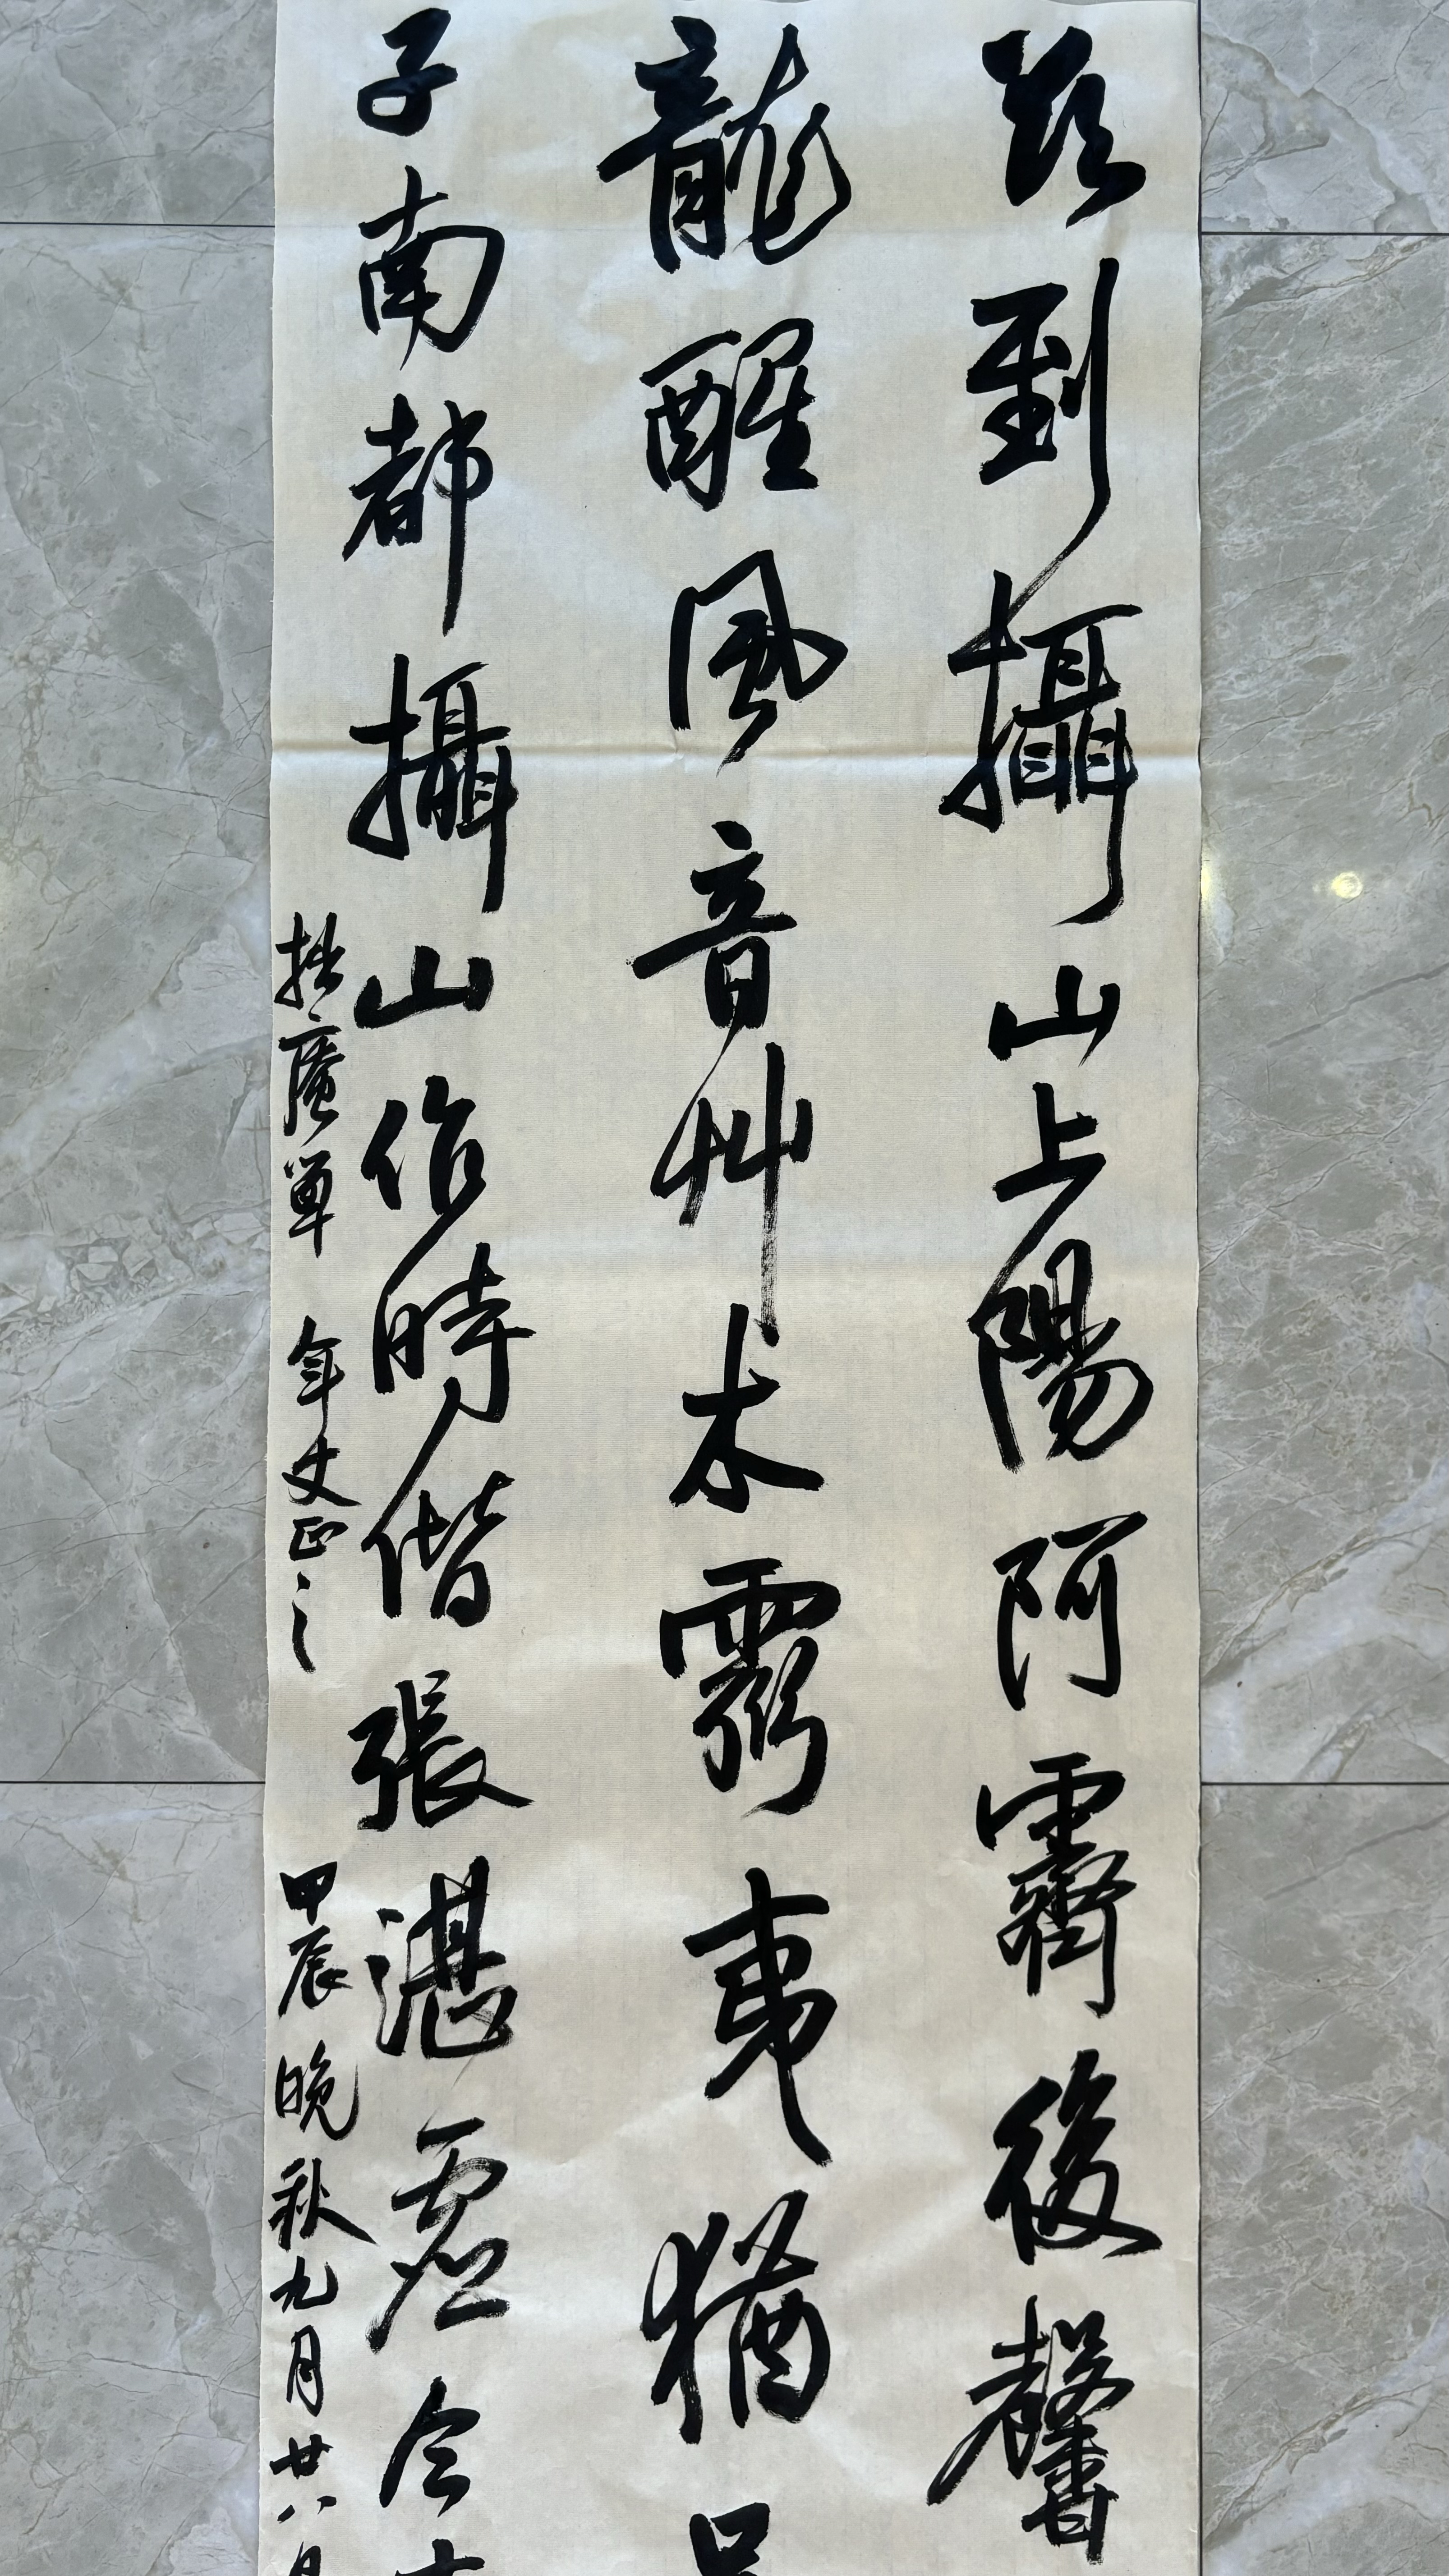 到攝山上陽阿霽後馨
龍醒風音艸木霛夷猶
子南都攝山作時偕張湛虛今
年丈正之
甲辰晚秋九月廿八